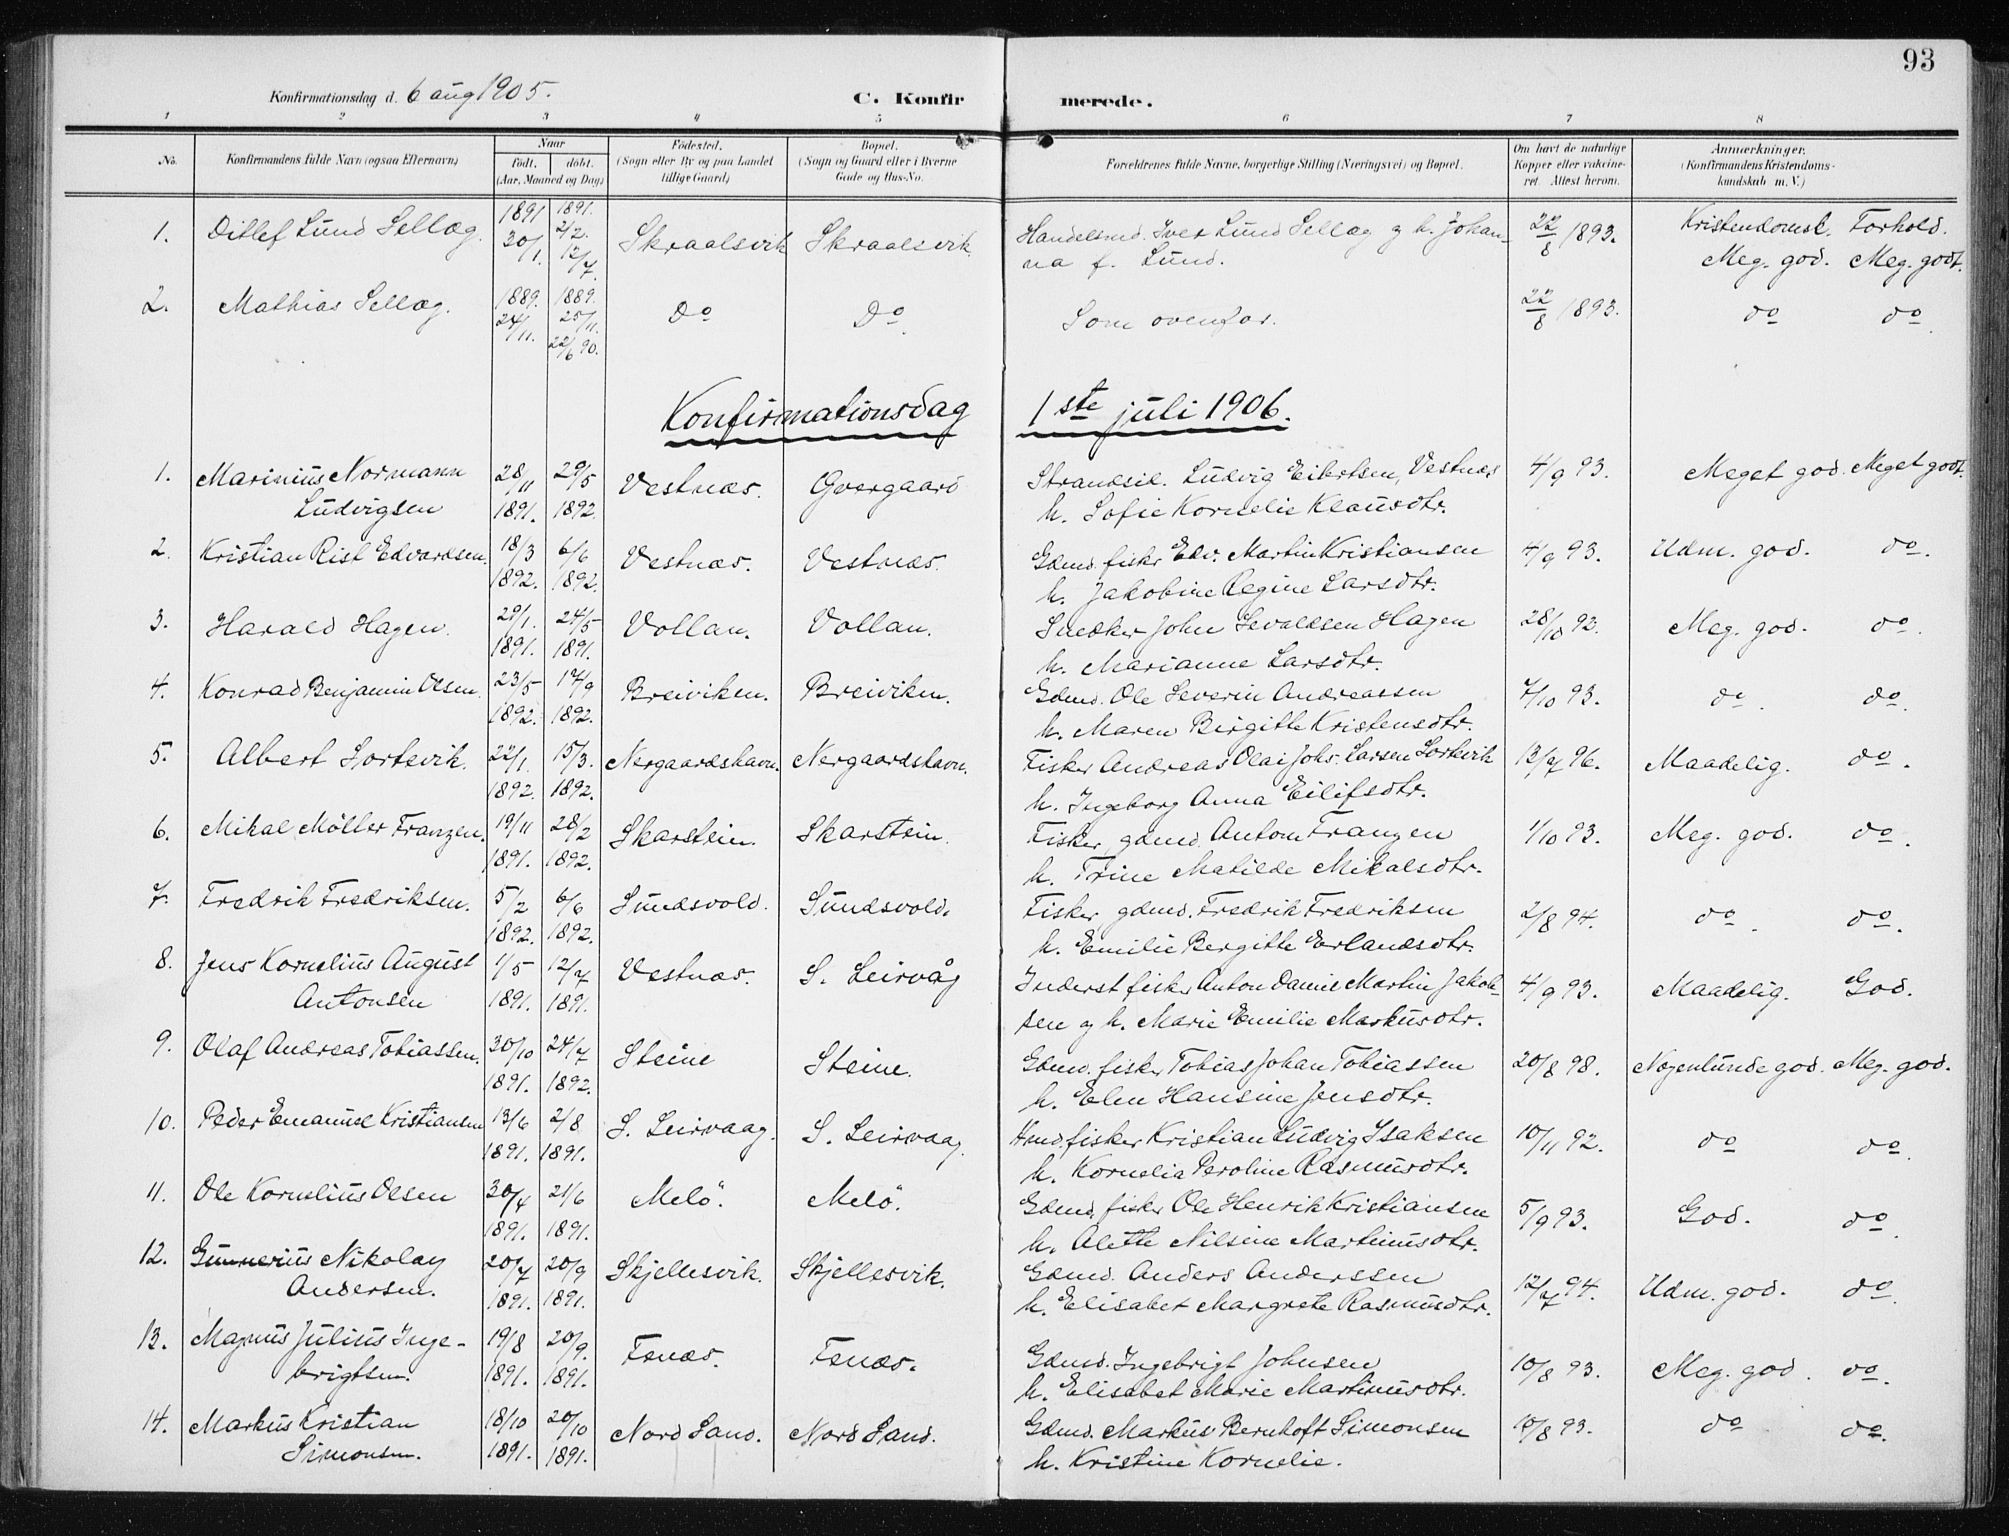 93
Konfirmationsdag d. 6 aug 1905.
C. Konfirmerede.
1 2 3 4 5 6 7 8
No. Konfirmandens fulde Navn (ogsaa Efternavn) Naar født. døbt. (Aar, Maaned og Dag) Fødested. (Sogn eller By og paa Landet tillige Gaard) Bopæl. (Sogn og Gaard eller i Byerne Gade og Hus-No. Forældrenes fulde Navne, borgerlige Stilling (Næringsvei) og Bopæl. Om havt de naturlige Kopper eller vakcineret. Attest herom. Anmærkninger. (Konfirmandens Kristendomskundskab m. V.)
Kristendomsk. Forhold.
1. Ditlef Lund Sellæg. 1891 30/1. 1891. 2/2. 12/7. Skraalsvik Skraalsvik Handelsmd. Iver Lund Sellæg g h. Johan-
na f. Lund. 22/8 1893. Meg. god. Meg. godt.
2. Mathias Sellæg. 1889. 24/11. 1889. 25/11. 22/6 90. Do Do. Som ovenfor. 22/8 1893. do do.
Konfirmationsdag 1ste juli 1906.
1. Marinius Normann 28/11 29/5 Vestnæs. Gvergaard Strandsid. Ludvig Eibertsen, Vestnæs 4/9 93. Meget god. Meget godt.
Ludvigsen 1891. 1892. h. Sofie Kornelie Klausdtr.
2. Kristian Rist Edvardsen. 18/3 6/6 Vestnæs. Vestnæs. Gdmd. fisker Edv. Martin Kristiansen 4/9 93. Udm. god. do.
1892. 1892. h. Jakobine Regine Larsdtr.
3. Harald Hagen. 29/1. 24/5 Vollan. Vollan. Snedker John Sevaldsen Hagen 28/10 92. Meg. god. do.
1891. 1891. h. Marianne Larsdtr.
4. Konrad Benjamin Olsen. 23/5 14/9 Breiviken. Breiviken. Gdmd. Ole Severin Andreassen 7/10 93. do. do.
1892. 1892. h. Maren Birgitte Kristensdtr.
5. Albert Sortevik. 22/1. 15/3. Nergaardshavn. Nergaardshavn. Fisker Andreas Olai Johs. Larsen Sortevik 13/7 96. Maadelig. do.
1892. 1892. h. Ingeborg Anna Eilifsdtr.
6. Mikal Möller Franzen. 19/11 28/2 Skarstein. Skarstein. Fisker, gdmd. Anton Franzen 1/10 93. Meg. god. do.
1891. 1892. h. Trine Matilde Mikalsdtr.
7. Fredrik Fredriksen. 5/2 6/6 Sundsvold. Sundsvold. Fisker, gdmd. Fredrik Fredriksen 2/8 94. do. do.
1892. 1892. h. Emilie Bergitte Erlandsdtr.
8. Jens Kornelius August 1/5 12/7 Vestnæs. S. Leirvåg Inderst fisker Anton Daniel Martin Jakob- 4/9 93. Maadelig. God.
Antonsen 1891. 1891. sen g h. Marie Emilie Markusdtr.
9. Olaf Andreas Tobiassen. 30/10 24/7 Steine Steine. Gdmd. fisker Tobias Johan Tobiassen 20/8 98. Nogenlunde god. Meg. god.
1891. 1892. h. Elen Hansine Jensdtr.
10. Peder Emanuel Kristiansen 13/6 2/8 S. Leirvaag. S. Leirvaag. Hmd. fisker Kristian Ludvig Isaksen 10/11 92. do do.
1891. 1891. h. Kornelia Peroline Rasmusdtr.
11. Ole Kornelius Olsen 30/4 21/6 Melö. Melö. Gdmd. fisker Ole Henrik Kristiansen 5/9 93. God. do.
1891. 1891. h. Alette Nilsine Martinusdtr.
12. Gunnerius Nikolay 20/7 20/9 Skjellesvik. Skjellesvik. Gdmd. Anders Anderssen 12/7 94. Udm. god. do.
Andersen. 1891. 1891. h. Elisabet Margrete Rasmusdtr.
13. Magnus Julius Inge- 19/8 20/9. Fenæs. Fenæs. Gdmd. Ingebrigt Johnsen 10/8 93. Meg. god. do.
brigtsen. 1891. 1891. h. Elisabet Marie Martinusdtr.
14. Markus Kristian 18/10 20/10 Nord Sand. Nord Sand. Gdmd. Markus Bernhoft Simonsen 10/8 93. do do.
Simonsen. 1891. 1891. h. Kristine Kornelie.